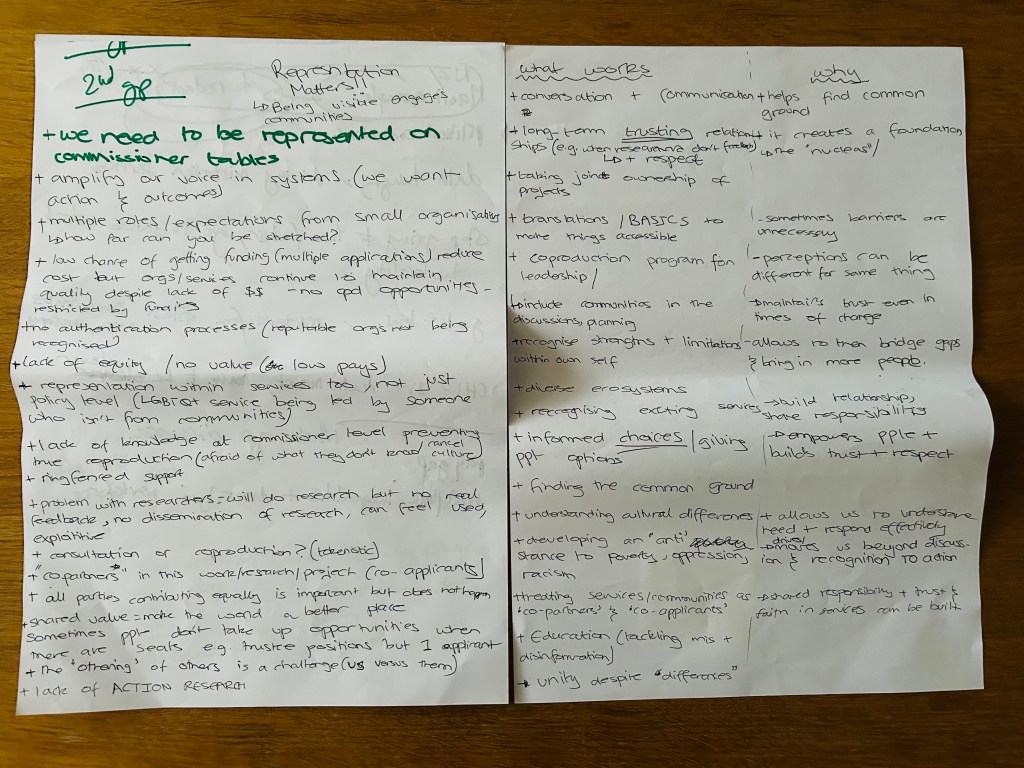 2nd gp
Representation
Matters!!
↳ Being visible engages
communities
+ we need to be represented on
commissioner tables
+ amplify our voice in systems (we want
action & outcomes)
+ multiple roles/expectations from small organisations
↳ how far can you be stretched?
+ low chance of getting funding (multiple applications) reduce
cost but orgs/services continue to maintain
quality despite lack of $$ - no cpd opportunities -
restricted by funding
+ no authentication processes (reputable orgs not being
recognised)
+ lack of equity / no value (low pays)
+ representation within services too, not just
policy level (LGBTQ+ service being led by someone
who isn't from communities)
+ lack of knowledge at commissioner level preventing
true coproduction (afraid of what they don't know / cancel culture)
+ ringfenced support
+ problem with researchers = will do research but no real
feedback, no dissemination of research, can feel used,
exploitive
+ consultation or coproduction? (tokenstic)
+ "copartners" in this work/research/project (co-applicants)
+ all parties contributing equally is important but does not happen
+ shared value = make the world a better place
sometimes ppl don't take up opportunities when
there are seats e.g. trustee positions but 1 applicant
+ the 'othering' of others is a challenge (us versus them)
+ lack of ACTION RESEARCH
what works
+ conversation + communication
+ long-term trusting relation-
ships (e.g. when researchers don't feedback)
↳ + respect
+ taking joint ownership of
projects
+ translations / BASICS to
make things accessible
+ coproduction program for
leadership /
↳ include communities in the
discussions, planning
+ recognise strengths + limitations
within own self
+ diverse ecosystems
+ recognising exciting services
+ informed choices / giving
ppl options
+ finding the common ground
+ understanding cultural differences
+ developing an "anti"
stance to poverty, oppression,
racism
+ treating services/communities as
'co-partners' & 'co-applicants'
+ Education (tackling mis +
disinformation)
+ unity despite "differences"
why
+ helps find common
ground
+ it creates a foundation
↳ the "nucleas"/
- sometimes barriers are
unnecessay
- perceptions can be
different for same thing
→ maintains trust even in
times of change
- allows to then bridge gaps
& bring in more people.
→ build relationship,
share responsibility
→ empowers pple +
builds trust + respect
+ allows us to understand
need + respond effectively
→ drives us beyond discuss-
ion & recognition TO action
→ shared responsibility + trust &
faith in services can be built